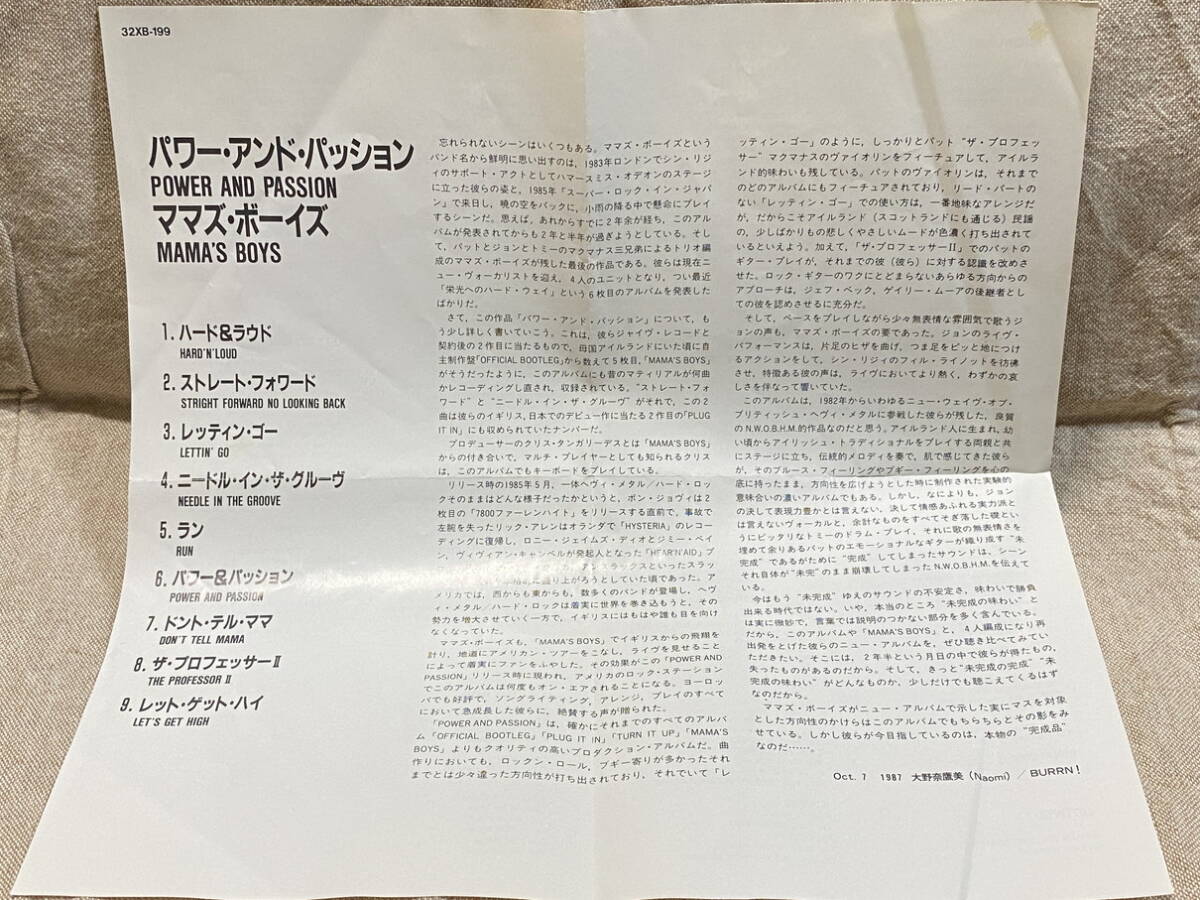 32XB-199
パワー・アンド・パッション
POWER AND PASSION
ママズ・ボーイズ
MAMA'S BOYS
1. ハード&ラウド
HARD'N'LOUD
2. ストレート・フォワード
STRIGHT FORWARD NO LOOKING BACK
3. レッティン・ゴー
LETTIN' GO
4. ニードル・イン・ザ・グルーヴ
NEEDLE IN THE GROOVE
5. ラン
RUN
6. パワー&パッション
POWER AND PASSION
7. ドント・テル・ママ
DON'T TELL MAMA
8. ザ・プロフェッサーII
THE PROFESSOR II
9. レット・ゲット・ハイ
LET'S GET HIGH
忘れられないシーンはいくつもある。ママズ・ボーイズという
バンド名から鮮明に思い出すのは，1983年ロンドンでシン・リジ
ィのサポート・アクトとしてハマースミス・オデオンのステージ
に立った彼らの姿と，1985年「スーパー・ロック・イン・ジャパ
ン」で来日し，暁の空をバックに，小雨の降る中で懸命にプレイ
するシーンだ。思えば，あれからすでに2年余が経ち，このアル
バムが発表されてからも2年と半年が過ぎようとしている。そし
て，パットとジョンとトミーのマクマナス三兄弟によるトリオ編
成のママズ・ボーイズが残した最後の作品である。彼らは現在ニ
ュー・ヴォーカリストを迎え，4人のユニットとなり，つい最近
「栄光へのハード・ウェイ」という6枚目のアルバムを発表した
ばかりだ。
さて，この作品「パワー・アンド・パッション」について，も
う少し詳しく書いていこう。これは，彼らジャイヴ・レコードと
契約後の2作目に当たるもので，母国アイルランドにいた頃に自
主制作盤「OFFICIAL BOOTLEG」から数えて5枚目，「MAMA'S BOYS」
がそうだったように，このアルバムにも昔のマティリアルが何曲
かレコーディングし直され，収録されている。“ストレート・フォ
ワード”と“ニードル・イン・ザ・グルーヴ”がそれで，この2
曲は彼らのイギリス，日本でのデビュー作に当たる2作目の「PLUG
IT IN」にも収められていたナンバーだ。
プロデューサーのクリス・タンガリーデスとは「MAMA'S BOYS」
からの付き合いで，マルチ・プレイヤーとしても知られるクリス
は，このアルバムでもキーボードをプレイしている。
リリース時の1985年5月，一体ヘヴィ・メタル／ハード・ロッ
クそのままはどんな様子だったかというと，ボン・ジョヴィは2
枚目の「7800ファーレンハイト」をリリースする直前で，事故で
左腕を失ったリック・アレンはオランダで「HYSTERIA」のレコー
ディングに復帰し，ロニー・ジェイムズ・ディオとジミー・ベイ
ン，ヴィヴィアン・キャンベルが発起人となった「HEAR'N'AID」プ
スラックスといったスラッ
盛り上がろうとしていた頃であった。ア
メリカでは，西からも東からも，数多くのバンドが登場し，ヘヴ
ィ・メタル／ハード・ロックは着実に世界を巻き込もうと，その
勢力を増大させていく一方で，イギリスにはもはや誰も目を向け
なくなっていた。
ママズ・ボーイズも，「MAMA'S BOYS」でイギリスからの飛翔を
計り，地道にアメリカン・ツアーをこなし，ライヴを見せること
によって着実にファンをふやした。その効果がこの「POWER AND
PASSION」リリース時に現われ，アメリカのロック・ステーション
でこのアルバムは何度もオン・エアされることになる。ヨーロッ
パでも好評で，ソングライティング，アレンジ，プレイのすべて
において急成長した彼らに，絶賛する声が贈られた。
「POWER AND PASSION」は，確かにそれまでのすべてのアルバ
ム「OFFICIAL BOOTLEG」「PLUG IT IN」「TURN IT UP」「MAMA'S
BOYS」よりもクオリティの高いプロダクション・アルバムだ。曲
作りにおいても，ロックン・ロール，ブギー寄りが多かったそれ
までとは少々違った方向性が打ち出されており，それでいて「レ
ッティン・ゴー」のように，しっかりとパット“ザ・プロフェッ
サー”マクマナスのヴァイオリンをフィーチュアして，アイルラ
ンド的味わいも残している。パットのヴァイオリンは，それまで
のどのアルバムにもフィーチュアされており，リード・パートの
ない「レッティン・ゴー」での使い方は，一番地味なアレンジだ
が，だからこそアイルランド（スコットランドにも通じる）民謡
の，少しばかりもの悲しくやさしいムードが色濃く打ち出されて
いるといえよう。加えて，「ザ・プロフェッサーII」でのパットの
ギター・プレイが，それまでの彼（彼ら）に対する認識を改めさ
せた。ロック・ギターのワクにとどまらないあらゆる方向からの
アプローチは，ジェフ・ベック，ゲイリー・ムーアの後継者とし
ての彼を認めさせるに充分だ。
そして，ベースをプレイしながら少々無表情な雰囲気で歌うジ
ョンの声も，ママズ・ボーイズの要であった。ジョンのライヴ・
パフォーマンスは，片足のヒザを曲げ，つま足をピッと地につけ
るアクションをして，シン・リジィのフィル・ライノットを彷彿
させ，特徴ある彼の声は，ライヴにおいてより熱く，わずかの哀
しさを伴なって響いていた。
このアルバムは，1982年からいわゆるニュー・ウェイヴ・オブ・
ブリティッシュ・ヘヴィ・メタルに参戦した彼らが残した，良質
のN.W.O.B.H.M.的作品なのだと思う。アイルランド人に生まれ，幼
い頃からアイリッシュ・トラディショナルをプレイする両親と共
にステージに立ち，伝統的メロディを奏で，肌で感じてきた彼ら
が，そのブルース・フィーリングやブギー・フィーリングを心の
底に持ったまま，方向性を広げようとした時に制作された実験的
意味合いの濃いアルバムでもある。しかし，なによりも，ジョン
の決して表現力豊かとは言えない，決して情感あふれる実力派と
は言えないヴォーカルと，余計なものをすべてそぎ落した礎とい
うにピッタリなトミーのドラム・プレイ，それに歌の無表情さを
埋めて余りあるパットのエモーショナルなギターが織り成す“未
完成”であるがために“完成”してしまったサウンドは，シーン
それ自体が“未完”のまま崩壊してしまったN.W.O.B.H.M.を伝えて
いる。
今はもう“未完成”ゆえのサウンドの不安定さ，味わいで勝負
出来る時代ではない。いや，本当のところ“未完成の味わい”と
は実に微妙で，言葉では説明のつかない部分を多く含んでいる。
だから，このアルバムや「MAMA'S BOYS」と，4人編成になり再
出発をとげた彼らのニュー・アルバムを，ぜひ聴き比べてみてい
ただきたい。そこには，2年半という月日の中で彼らが得たもの，
失ったものがあるのだから。そして，きっと“未完成の完成”“未
完成の味わい”がどんなものか，少しだけでも聴こえてくるはず
なのだから。
ママズ・ボーイズがニュー・アルバムで示した実にマスを対象
とした方向性のかけらはこのアルバムでもちらちらとその影をみ
せている。しかし彼らが今目指しているのは，本物の“完成品”
なのだ……。
Oct. 7 1987 大野奈鷹美（Naomi）／BURRN！